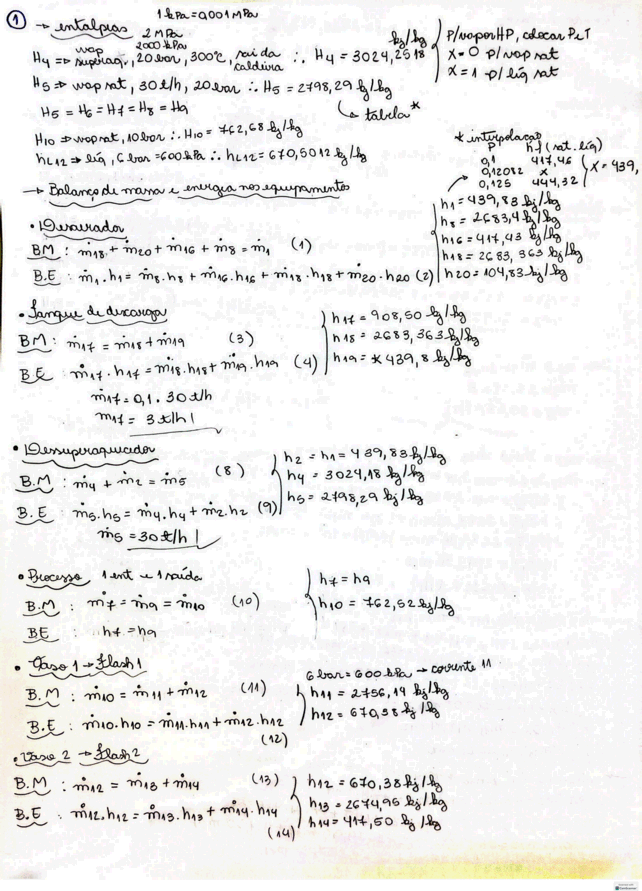 1 kPa = 0,001 MPa
① → entalpias
2 MPa
2000 kPa
H4 ⇒ vap superaq, 20 bar, 300°C, saída caldeira ∴ H4 = 3024,2518 kj/kg
P/vapor HP, colocar P e T
X = 0 p/ vap sat
X = 1 p/ líq sat
H5 ⇒ vap sat, 30 t/h, 20 bar ∴ H5 = 2798,29 kj/kg
↳ tabela *
H5 = H6 = H7 = H8 = H9
H10 ⇒ vap sat, 10 bar ∴ H10 = 762,68 kj/kg
hL12 ⇒ líq, 6 bar = 600 kPa ∴ hL12 = 670,5012 kj/kg
* interpolação
P hf (sat. líq)
0,1 417,46
0,12082 x
0,125 444,32
X = 439,
→ Balanço de massa e energia nos equipamentos
• Desaerador
BM : ṁ18 + ṁ20 + ṁ16 + ṁ8 = ṁ1 (1)
B.E : ṁ1.h1 = ṁ8.h8 + ṁ16.h16 + ṁ18.h18 + ṁ20.h20 (2)
h1 = 439,83 kj/kg
h8 = 2683,4 kj/kg
h16 = 417,43 kj/kg
h18 = 2683,363 kj/kg
h20 = 104,83 kj/kg
• Tanque de discarga
BM : ṁ17 = ṁ18 + ṁ19 (3)
BE : ṁ17.h17 = ṁ18.h18 + ṁ19.h19 (4)
ṁ17 = 0,1 . 30 t/h
ṁ17 = 3 t/h
h17 = 908,50 kj/kg
h18 = 2683,363 kj/kg
h19 = * 439,8 kj/kg
• Dessuperaquecedor
B.M : ṁ4 + ṁ2 = ṁ5 (8)
B.E : ṁ5.h5 = ṁ4.h4 + ṁ2.h2 (9)
ṁ5 = 30 t/h
h2 = h1 = 439,83 kj/kg
h4 = 3024,18 kj/kg
h5 = 2798,29 kj/kg
• Processo 1 ent e 1 saída
B.M : ṁ7 = ṁ9 = ṁ10 (10)
BE : h7 = h9
h7 = h9
h10 = 762,52 kj/kg
• Vaso 1 → Flash 1
B.M : ṁ10 = ṁ11 + ṁ12 (11)
B.E : ṁ10.h10 = ṁ11.h11 + ṁ12.h12 (12)
6 bar = 600 kPa → corrente 11
h11 = 2756,14 kj/kg
h12 = 670,38 kj/kg
• Vaso 2 → Flash 2
B.M : ṁ12 = ṁ13 + ṁ14 (13)
B.E : ṁ12.h12 = ṁ13.h13 + ṁ14.h14 (14)
h12 = 670,38 kj/kg
h13 = 2674,95 kj/kg
h14 = 417,50 kj/kg